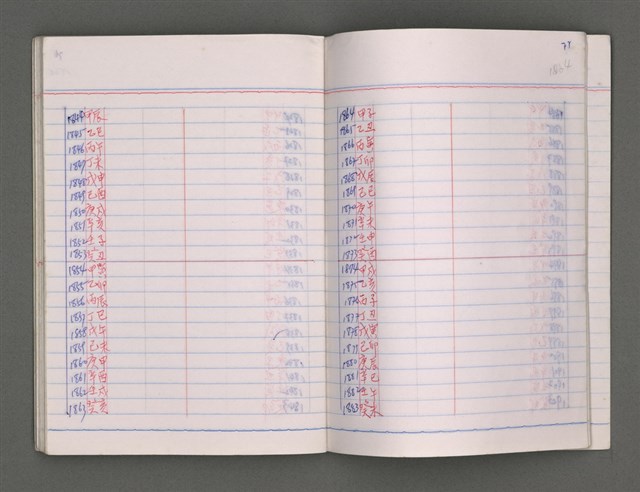 1844甲辰
1845乙巳
1846丙午
1847丁未
1848戊申
1849己酉
1850庚戌
1851辛亥
1852壬子
1853癸丑
1854甲寅
1855乙卯
1856丙辰
1857丁巳
1858戊午
1859己未
1860庚申
1861辛酉
1862壬戌
1863癸亥
1864
1864甲子
1865乙丑
1866丙寅
1867丁卯
1868戊辰
1869己巳
1870庚午
1871辛未
1872壬申
1873癸酉
1874甲戌
1875乙亥
1876丙子
1877丁丑
1878戊寅
1879己卯
1880庚辰
1881辛巳
1882壬午
1883癸未